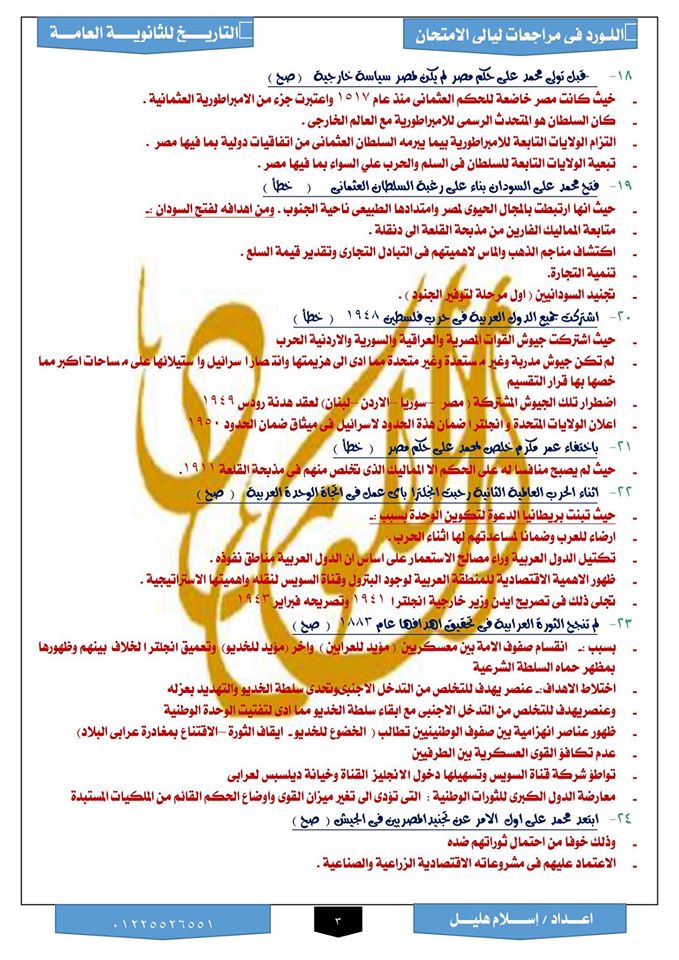 اللورد فى مراجعات ليالى الامتحان
التاريخ للثانوية العامة
١٨- قبل تولى محمد على حكم مصر لم يكن لمصر سياسة خارجية ( صح )
- حيث كانت مصر خاضعة للحكم العثمانى منذ عام ١٥١٧ واعتبرت جزء من الامبراطورية العثمانية .
- كان السلطان هو المتحدث الرسمى للامبراطورية مع العالم الخارجى .
- التزام الولايات التابعة للامبراطورية بيما يبرمه السلطان العثمانى من اتفاقيات دولية بما فيها مصر .
- تبعية الولايات التابعة للسلطان فى السلم والحرب علي السواء بما فيها مصر .
١٩- فتح محمد على السودان بناء على رغبة السلطان العثمانى ( خطأ )
- حيث انها ارتبطت بالمجال الحيوى لمصر وامتدادها الطبيعى ناحية الجنوب . ومن اهدافه لفتح السودان :-
- متابعة المماليك الفارين من مذبحة القلعة الى دنقلة .
- اكتشاف مناجم الذهب والماس لاهميتهم فى التبادل التجارى وتقدير قيمة السلع .
- تنمية التجارة.
- تجنيد السودانيين ( اول مرحلة لتوفير الجنود ) .
٢٠- اشتركت جميع الدول العربية فى حرب فلسطين ١٩٤٨ ( خطأ )
- حيث اشتركت جيوش القوات المصرية والعراقية والسورية والاردنية الحرب
- لم تكن جيوش مدربة وغير مستعدة وغير متحدة مما ادى الى هزيمتها وانتصار اسرائيل واستيلائها على مساحات اكبر مما
خصها بها قرار التقسيم
- اضطرار تلك الجيوش المشتركة ( مصر – سوريا – الاردن – لبنان) لعقد هدنة رودس ١٩٤٩
- اعلان الولايات المتحدة و انجلترا ضمان هذة الحدود لاسرائيل فى ميثاق ضمان الحدود ١٩٥٠
٢١- باختفاء عمر مكرم خلص لمحمد على حكم مصر ( خطأ )
- حيث لم يصبح منافسا له على الحكم الا المماليك الذى تخلص منهم فى مذبحة القلعة ١٩١١.
٢٢- اثناء الحرب العالمية الثانية رحبت انجلترا باى عمل فى اتجاة الوحدة العربية ( صح )
- حيث تبنت بريطانيا الدعوة لتكوين الوحدة بسبب :-
- ارضاء للعرب وضمانا لمساعدتهم لها اثناء الحرب .
- تكتيل الدول العربية وراء مصالح الاستعمار على اساس ان الدول العربية مناطق نفوذه .
- ظهور الاهمية الاقتصادية للمنطقة العربية لوجود البترول وقناة السويس لنقله واهميتها الاستراتيجية .
- تجلى ذلك فى تصريح ايدن وزير خارجية انجلترا ١٩٤١ وتصريحه فبراير ١٩٤٣
٢٣- لم تنجح الثورة العرابية فى تحقيق اهدافها عام ١٨٨٣ ( صح )
- بسبب :- انقسام صفوف الامة بين معسكريين ( مؤيد للعرابين ) واخر (مؤيد للخديو) وتعميق انجلترا الخلاف بينهم وظهورها
بمظهر حماه السلطة الشرعية
- اختلاط الاهداف:- عنصر يهدف للتخلص من التدخل الاجنبى وتحدى سلطة الخديو والتهديد بعزله
- وعنصر يهدف للتخلص من التدخل الاجنبى مع ابقاء سلطة الخديو مما ادى لتفتيت الوحدة الوطنية
- ظهور عناصر انهزامية بين صفوف الوطنيين تطالب ( الخضوع للخديو - ايقاف الثورة – الاقتناع بمغادرة عرابى البلاد)
- عدم تكافؤ القوى العسكرية بين الطرفيين
- تواطؤ شركة قناة السويس وتسهيلها دخول الانجليز القناة وخيانة ديلسبس لعرابى
- معارضة الدول الكبرى للثورات الوطنية : التى تؤدى الى تغير ميزان القوى واوضاع الحكم القائم من الملكيات المستبدة
٢٤- ابتعد محمد على اول الامر عن تجنيد المصريين فى الجيش ( صح )
- وذلك خوفا من احتمال ثوراتهم ضده
- الاعتماد عليهم فى مشروعاته الاقتصادية الزراعية والصناعية .
اللورد
اعداد / إسلام هليل
٣
٠١٢٢٥٥٢٦٥٥١